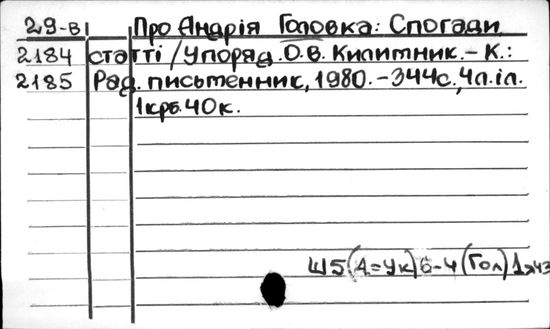 29-В Про Андрія Головка: Спогади
2184 статті / Упоряд. О.В. Килитник. - К.:
2185 Рад. письменник, 1980. - 344с., 4л.іл.
1крб. 40к.
Ш5(4=Ук)6-4(Гол)1я43